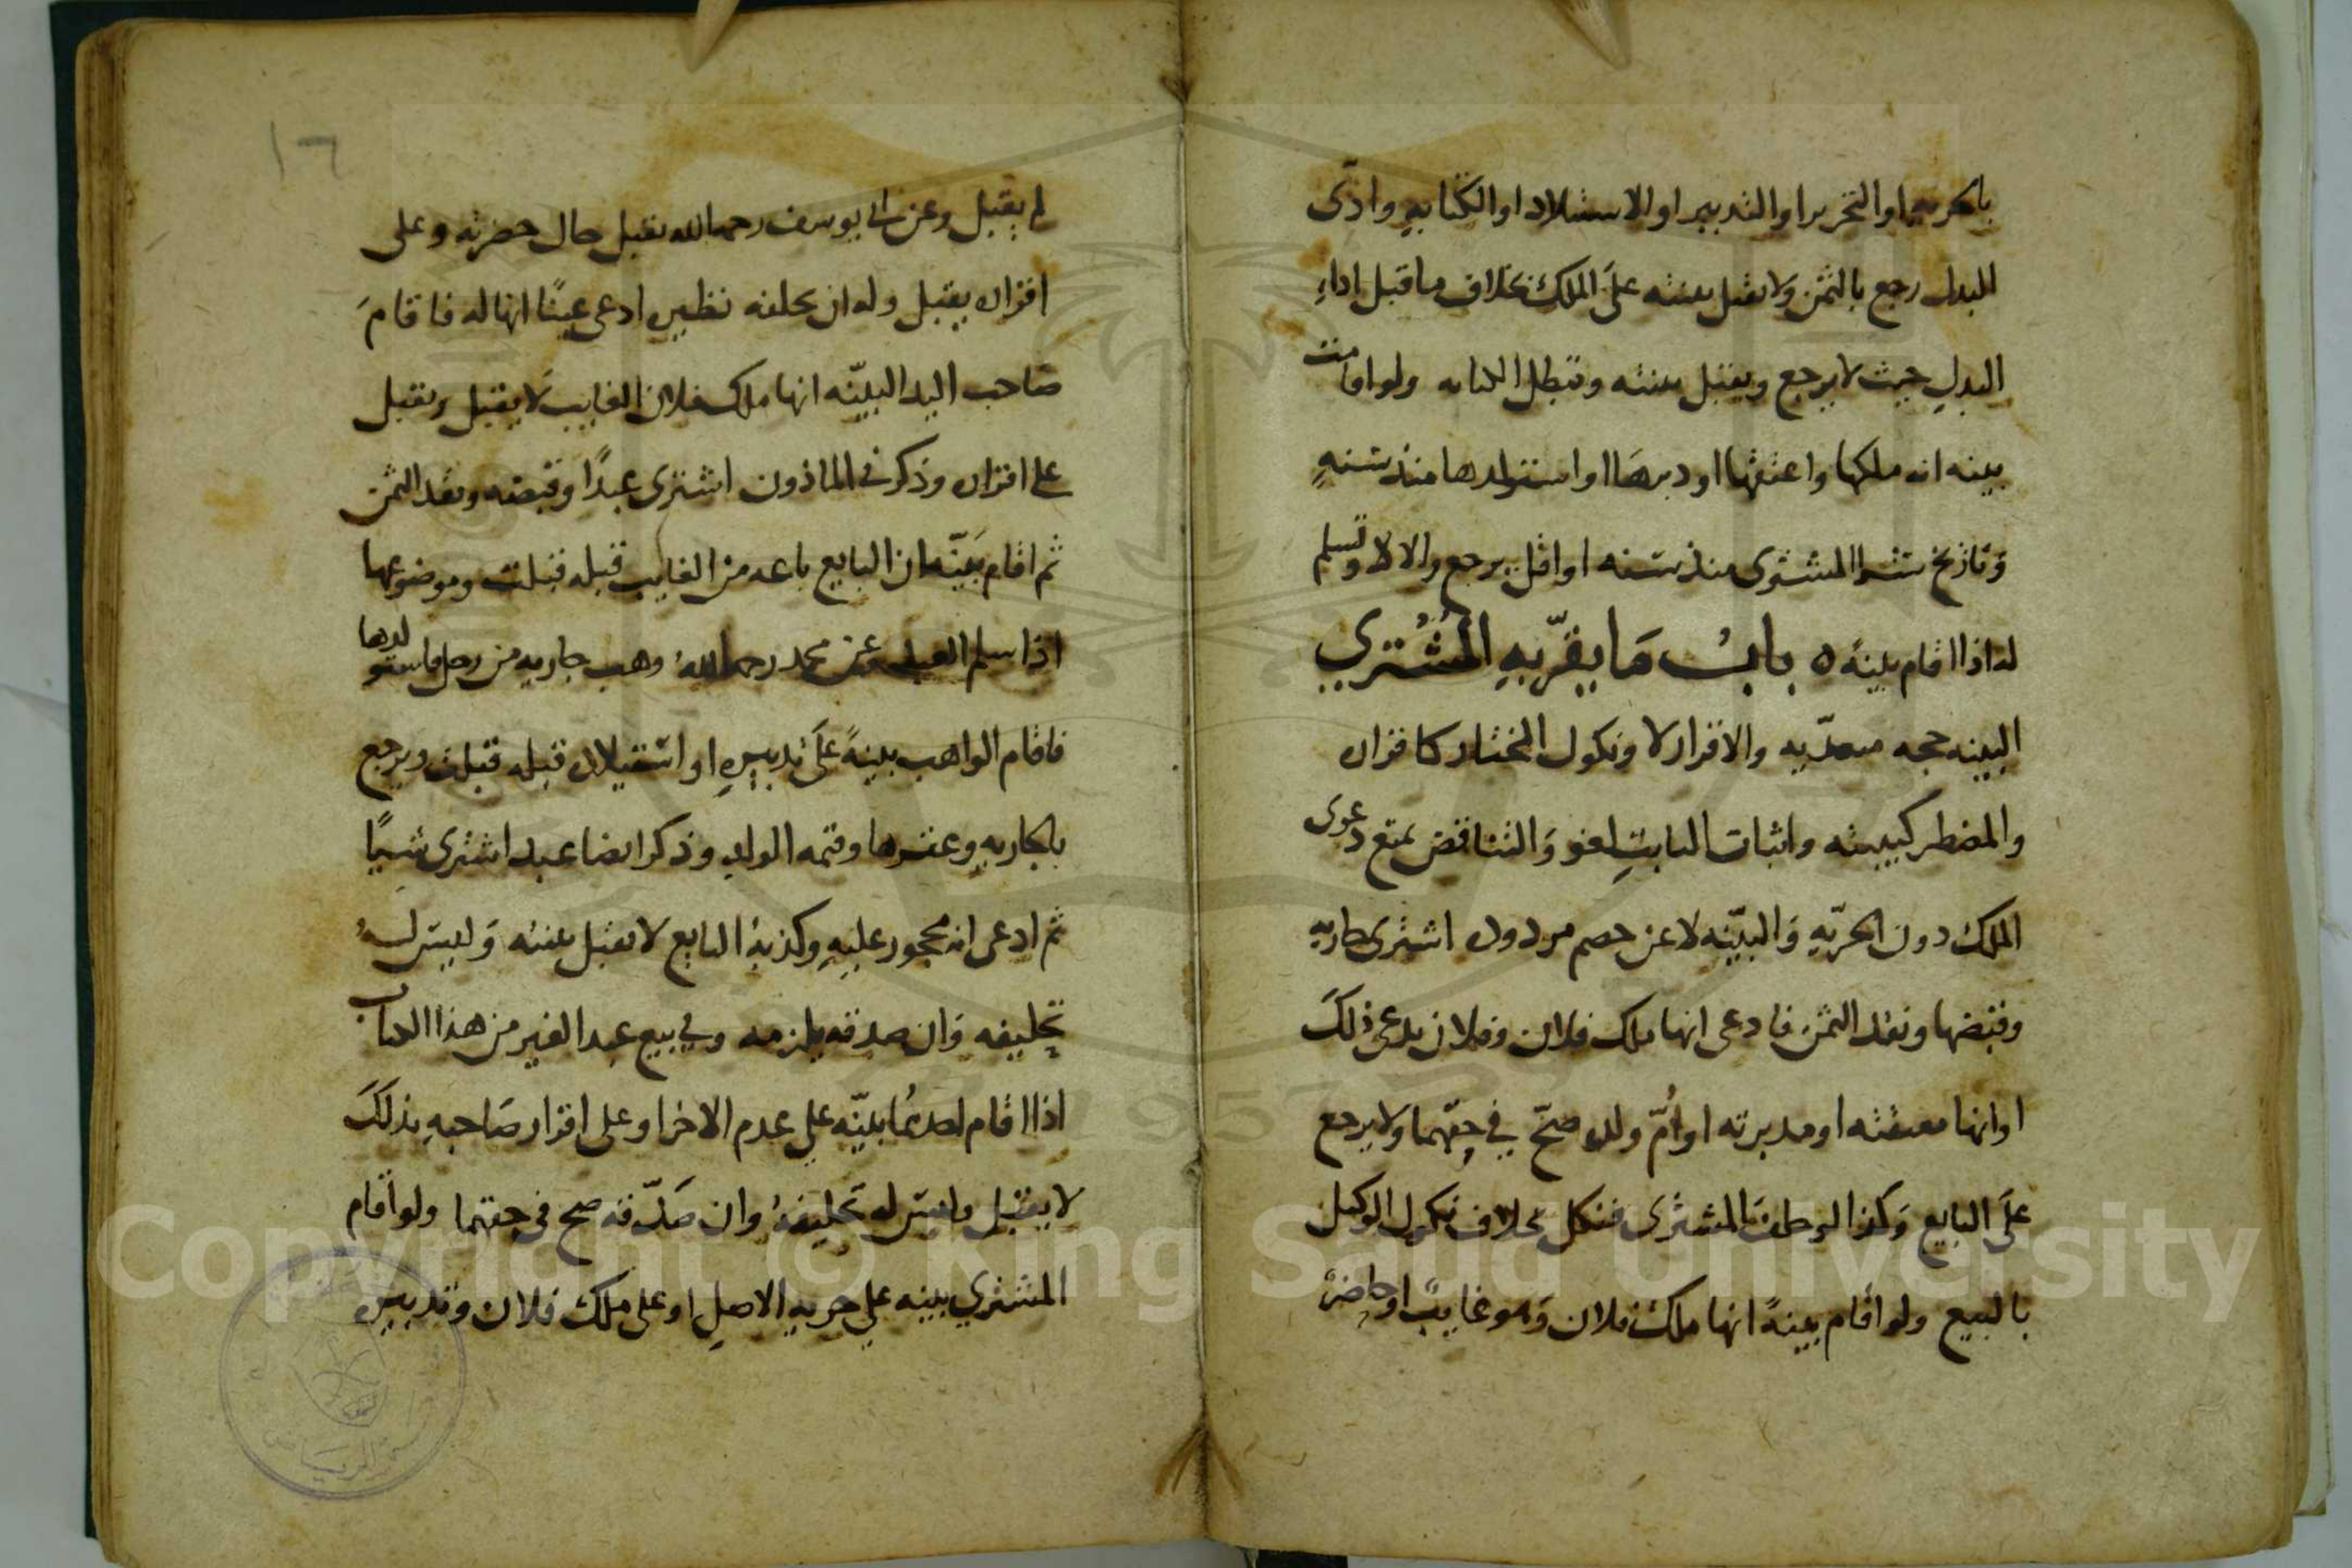 بالحريه او التحرير او التدبير او الاستيلاد او الكتابه وادّى
البدل رجع بالثمن ولا يقبل بينته على الملك بخلاف ما قبل اداء
البدل حيث لا يرجع ويقبل بينته وتبطل الكتابه ولو اقامت
بينه انه ملكها واعتقها او دبرها او استولدها منذ سنه
وتاريخ شرا المشترى منذ سنه او اقل يرجع والا لا وتسلم
له اذا اقام بينه ه باب ما يقرّ به المُشْتري
البينه حجه متعدّيه والاقرار لا ونكول المختار كاقراره
والمضطر كبينته واثبات الثابت لغو والتناقض يمنع دعوى
الملك دون الحرّيه والبيّنه لا عن خصم مردوده اشترى جاريه
وقبضها ونقد الثمن فادعى انها ملك فلان وفلان يدعى ذلك
او انها معتقته او مدبرته او اُمّ ولده صحّ في حقّهما ولا يرجع
على البايع وكذا لو حلف المشترى فنكل بخلاف نكول الوكيل
بالبيع ولو اقام بينةً انها ملك فلان وهو غايبٌ او حاضرٌ
١٦
لم يقبل وعن ابى يوسف رحمه الله يقبل حال حضرته وعلى
اقراره يقبل وله ان يحلفه نظيره ادعى عينًا انها له فاقام
صاحب اليد البينّه انها ملك فلان الغايب لا يقبل ويقبل
على اقراره وذكر في الماذون اشترى عبدًا وقبضه ونقد الثمن
ثم اقام بيّنه ان البايع باعه من الغايب قبله قبلت وموضوعها
اذا سلم العبد وعن محمد رحمه الله وهب جاريه من رجل فاستولدها
فاقام الواهب بينةً على تدبيره او استيلاده قبله قبلت ويرجع
بالجاريه وعقرها وقيمه الولد وذكر ايضا عبد اشترى شيًا
ثم ادعى انه محجور عليه وكذبه البايع لا يقبل بينته وليس له
تحليفه وان صدقه يلزمه وفي بيع عبد الغير من هذا الكتاب
اذا اقام احدهُما بيّنه على عدم الاخر او على اقرار صاحبه بذلك
لا يقبل وليس له تحليفهُ وان صدّقه صح في حقهما ولو اقام
المشتري بينه على حريه الاصل او على ملك فلان وتدبيره
Copyright © King Saud University
1957